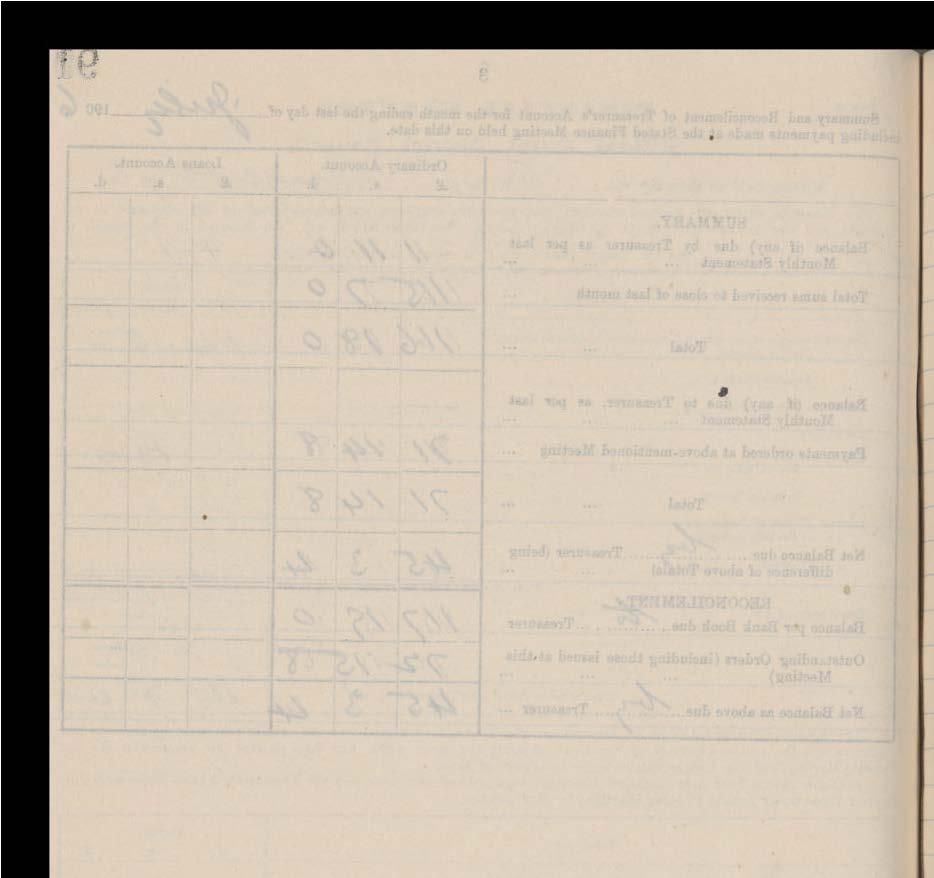 3
Summary and Reconcilement of Treasurer's Account for the month ending the last day of July 1906
including payments made at the Stated Finance Meeting held on this date.
Ordinary Account. Loans Account.
£ s. d. £ s. d.
SUMMARY.
Balance (if any) due by Treasurer as per last
Monthly Statement ... ... ... 1 11 0
Total sums received to close of last month ... 115 7 0
Total ... ... 116 18 0
Balance (if any) due to Treasurer, as per last
Monthly Statement ... ... ...
Payments ordered at above-mentioned Meeting ... 71 14 8
Total ... ... 71 14 8
Net Balance due by Treasurer (being
difference of above Totals) ... ... 45 3 4
RECONCILEMENT.
Balance per Bank Book due by Treasurer 117 19 0
Outstanding Orders (including those issued at this
Meeting) ... ... ... 72 15 8
Net Balance as above due by Treasurer ... 45 3 4